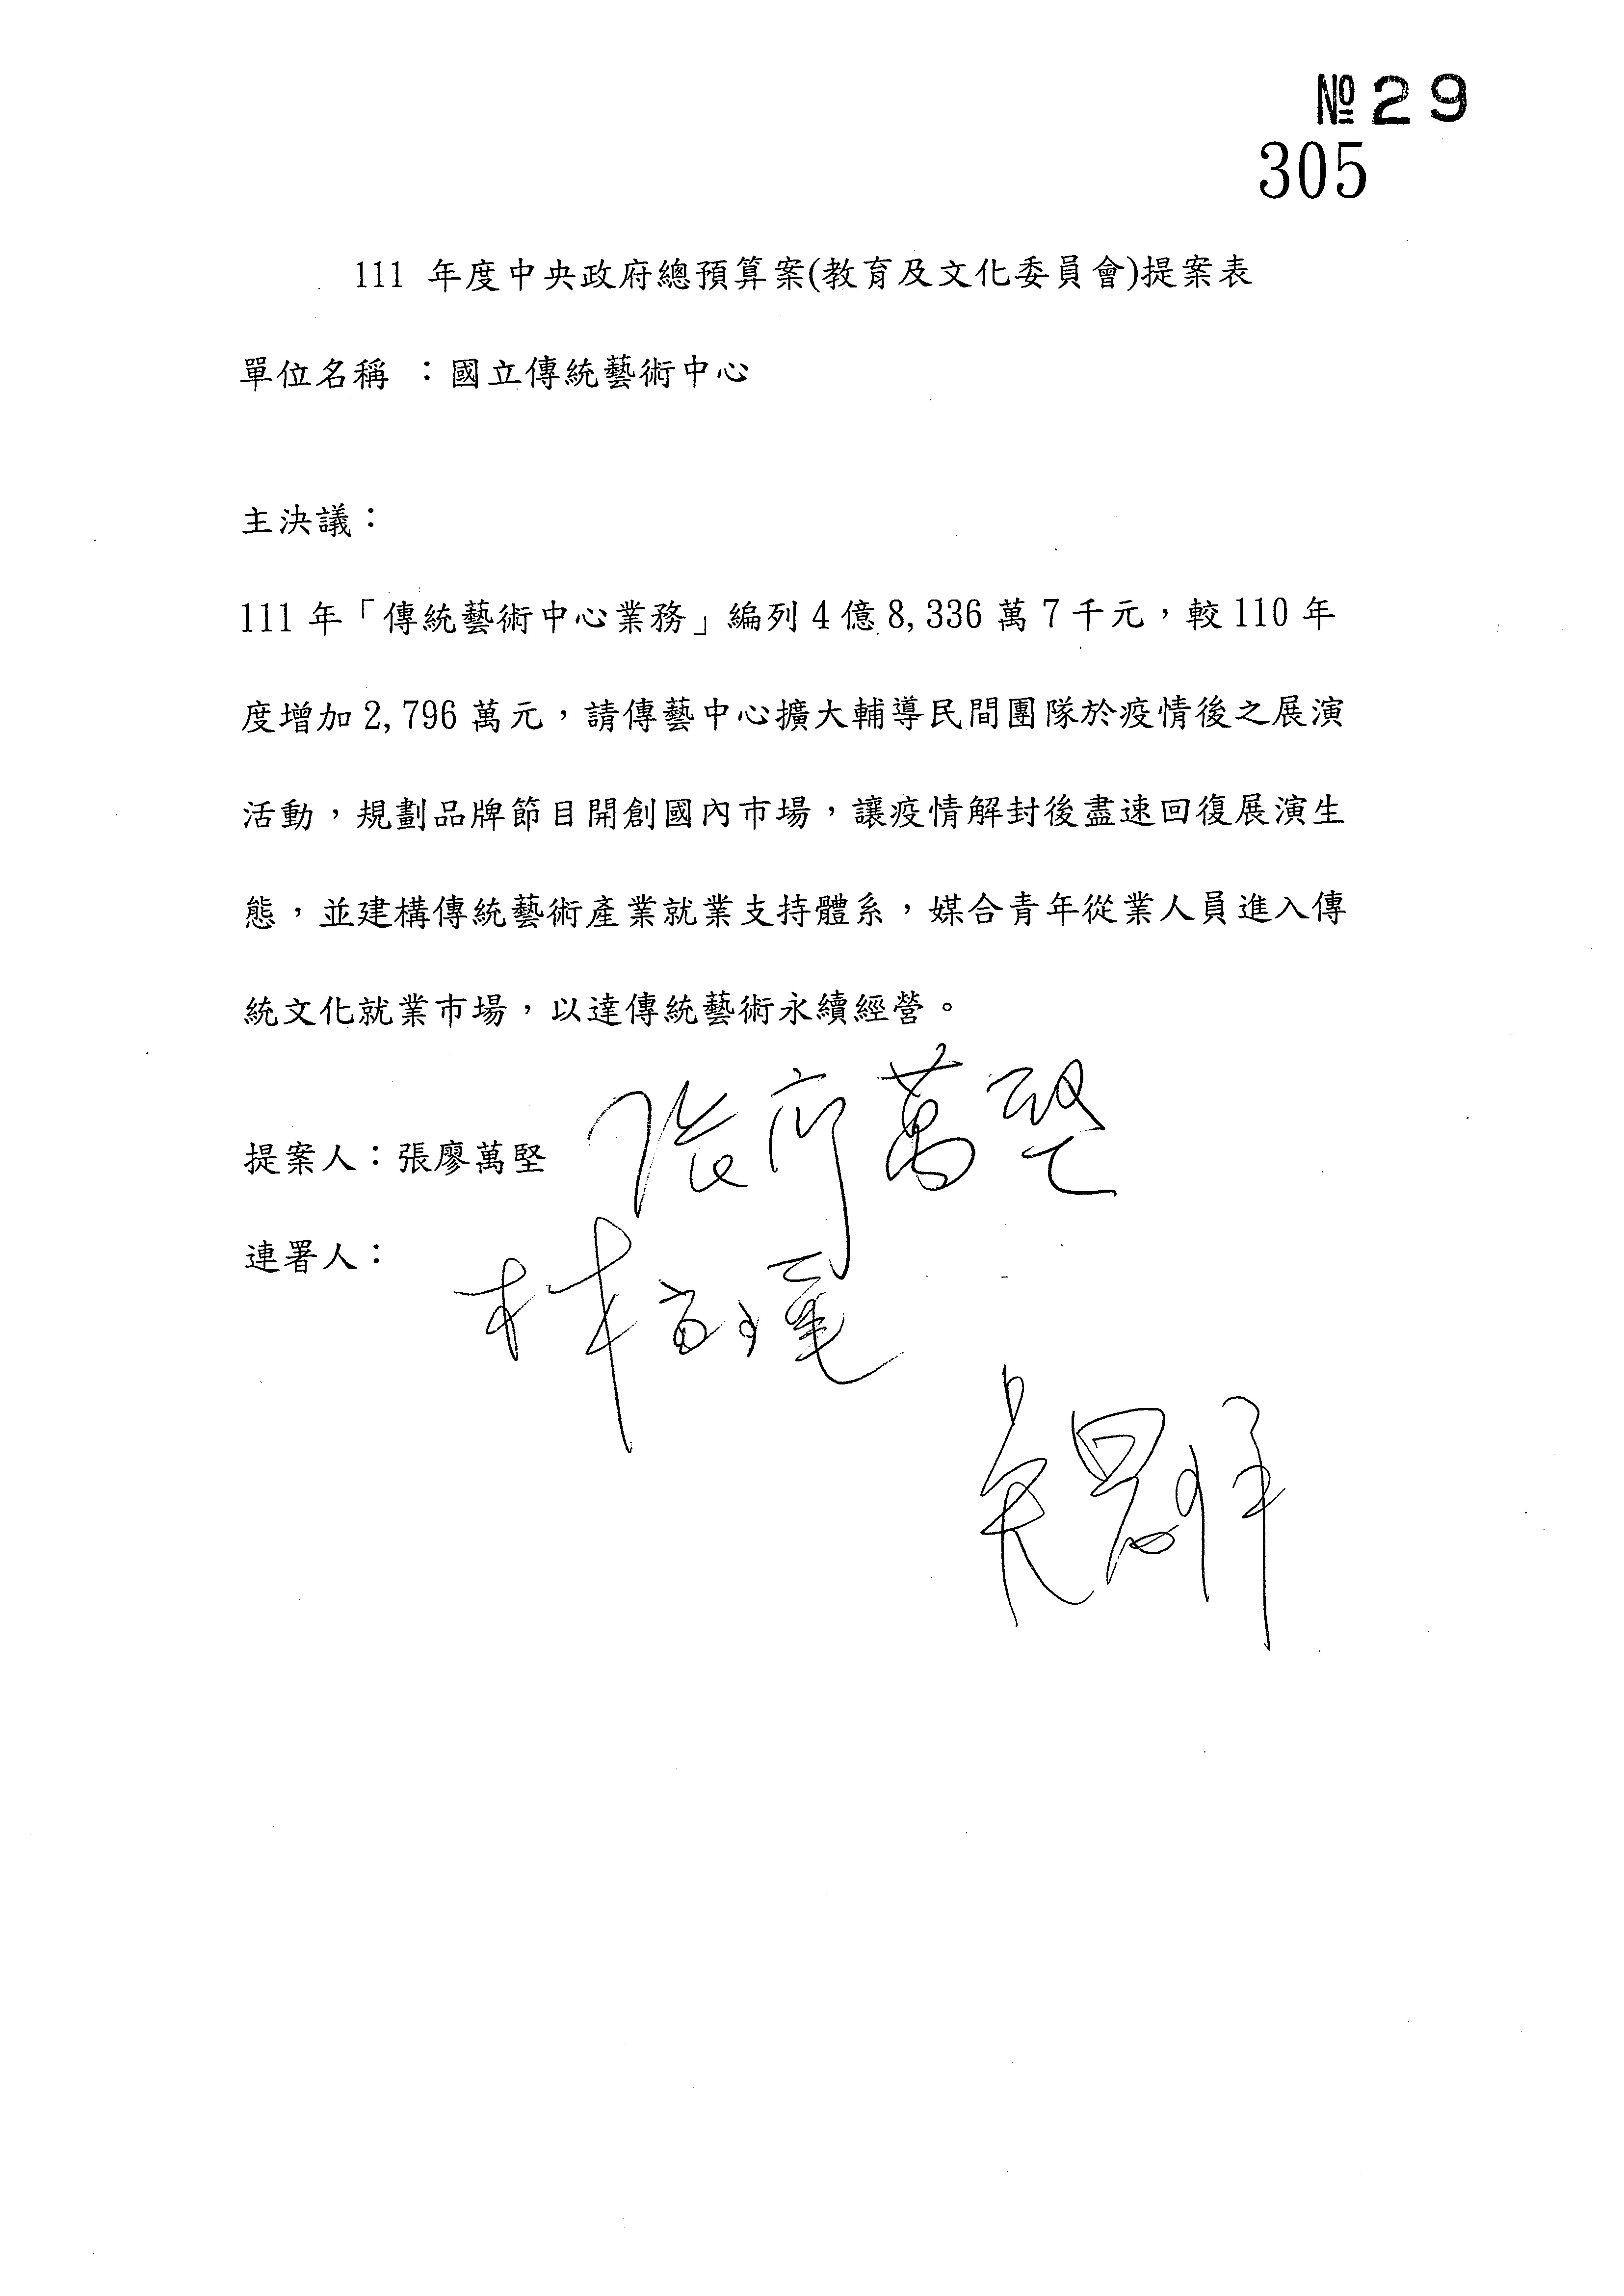 №29
305
111 年度中央政府總預算案(教育及文化委員會)提案表
單位名稱 ：國立傳統藝術中心
主決議：
111 年「傳統藝術中心業務」編列 4 億 8,336 萬 7 千元，較 110 年
度增加 2,796 萬元，請傳藝中心擴大輔導民間團隊於疫情後之展演
活動，規劃品牌節目開創國內市場，讓疫情解封後盡速回復展演生
態，並建構傳統藝術產業就業支持體系，媒合青年從業人員進入傳
統文化就業市場，以達傳統藝術永續經營。
提案人：張廖萬堅 張廖萬堅
連署人：